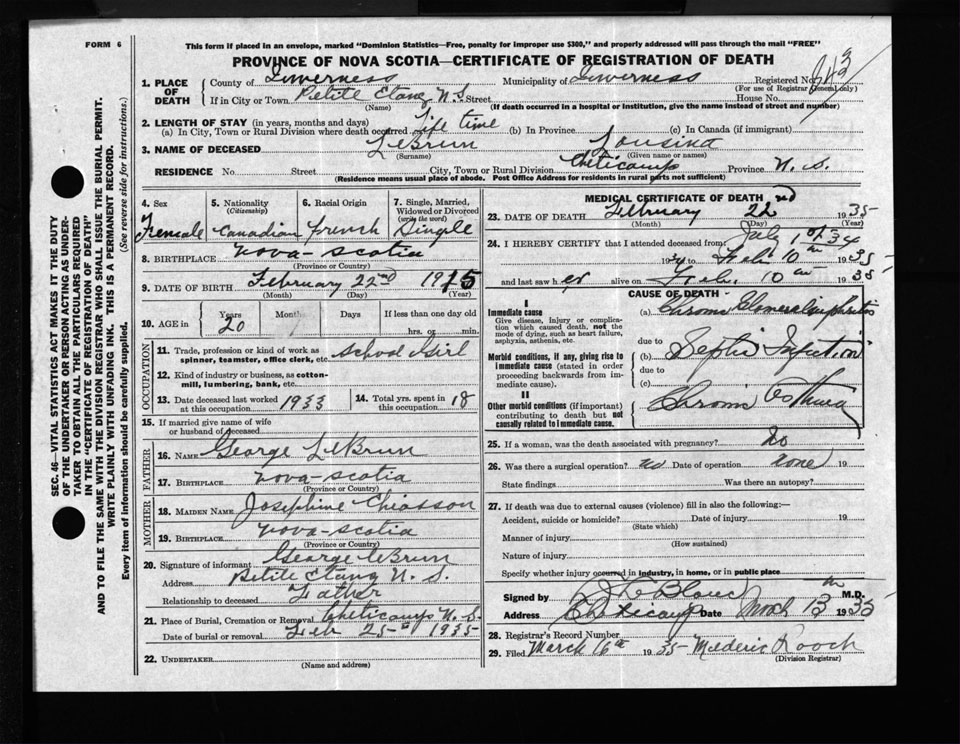 FORM 6
This form if placed in an envelope, marked "Dominion Statistics—Free, penalty for improper use $300," and properly addressed will pass through the mail "FREE"
PROVINCE OF NOVA SCOTIA—CERTIFICATE OF REGISTRATION OF DEATH
SEC. 46—VITAL STATISTICS ACT MAKES IT THE DUTY
OF THE UNDERTAKER OR PERSON ACTING AS UNDER-
TAKER TO OBTAIN ALL THE PARTICULARS REQUIRED
IN THE "CERTIFICATE OF REGISTRATION OF DEATH"
AND TO FILE THE SAME WITH THE DIVISION REGISTRAR WHO SHALL ISSUE THE BURIAL PERMIT.
WRITE PLAINLY WITH UNFADING INK. THIS IS A PERMANENT RECORD.
Every item of information should be carefully supplied. (See reverse side for instructions.)
1. PLACE OF DEATH County of Inverness Municipality of Inverness Registered No.
(For use of Registrar General only)
If in City or Town Petite Etang N.S. Street House No.
(Name) (If death occurred in a hospital or institution, give the name instead of street and number)
2. LENGTH OF STAY (in years, months and days)
(a) In City, Town or Rural Division where death occurred Life time (b) In Province (c) In Canada (if immigrant)
3. NAME OF DECEASED LeBrun Lousina
(Surname) (Given name or names)
RESIDENCE No. Street City, Town or Rural Division Cheticamp Province N.S.
(Residence means usual place of abode. Post Office Address for residents in rural parts not sufficient)
4. Sex Female
5. Nationality (Citizenship) Canadian
6. Racial Origin French
7. Single, Married, Widowed or Divorced (write the word) Single
8. BIRTHPLACE Nova-Scotia
(Province or Country)
9. DATE OF BIRTH February 22nd 1915
(Month) (Day) (Year)
10. AGE in Years Months Days If less than one day old
20 hrs. or min.
OCCUPATION
11. Trade, profession or kind of work as spinner, teamster, office clerk, etc. School Girl
12. Kind of industry or business, as cotton-mill, lumbering, bank, etc.
13. Date deceased last worked at this occupation 1933 14. Total yrs. spent in this occupation 18
15. If married give name of wife or husband of deceased
FATHER
16. NAME George LeBrun
17. BIRTHPLACE Nova-Scotia
(Province or Country)
MOTHER
18. MAIDEN NAME Josephine Chiasson
19. BIRTHPLACE Nova-Scotia
(Province or Country)
20. Signature of informant George LeBrun
Address Petite Etang N.S.
Relationship to deceased Father
21. Place of Burial, Cremation or Removal Cheticamp N.S.
Date of burial or removal Feb 25th 1935
22. UNDERTAKER
(Name and address)
MEDICAL CERTIFICATE OF DEATH
23. DATE OF DEATH February 22nd 1935
(Month) (Day) (Year)
24. I HEREBY CERTIFY that I attended deceased from: July 1st 34
19 to Feb. 10th 1935
and last saw her alive on Feb. 10th 1935
CAUSE OF DEATH
I
Immediate cause
Give disease, injury or complication which caused death, not the mode of dying, such as heart failure, asphyxia, asthenia, etc.
(a) Chronic Glomerulonephritis
due to
Morbid conditions, if any, giving rise to immediate cause (stated in order proceeding backwards from immediate cause).
(b) Septic Infection
due to
(c)
II
Other morbid conditions (if important) contributing to death but not causally related to immediate cause.
Chronic Asthma
25. If a woman, was the death associated with pregnancy? No
26. Was there a surgical operation? no Date of operation none 19
State findings Was there an autopsy?
27. If death was due to external causes (violence) fill in also the following:—
Accident, suicide or homicide? Date of injury 19
(State which)
Manner of injury
(How sustained)
Nature of injury
Specify whether injury occurred in industry, in home, or in public place
Signed by LeBlanc M.D.
Address Cheticamp Date March 1935
28. Registrar's Record Number
29. Filed March 16th 1935 Mederic Rooch
(Division Registrar)